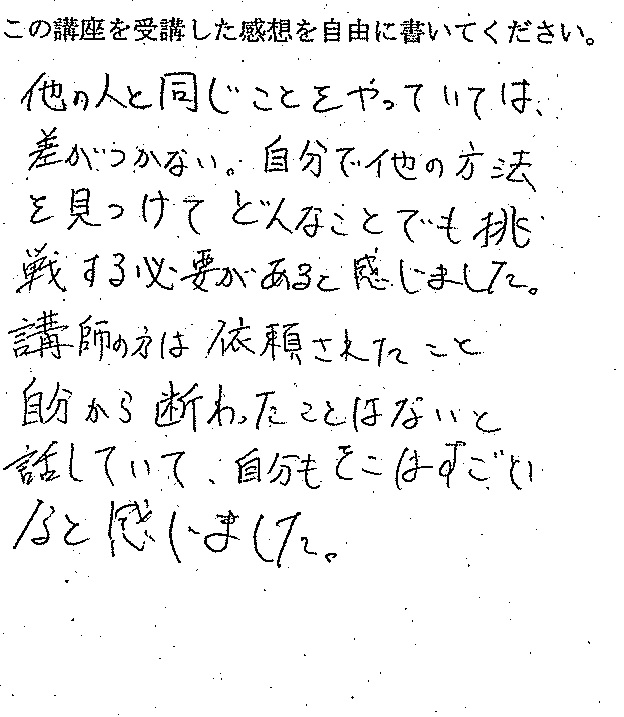 この講座を受講した感想を自由に書いてください。
他の人と同じことをやっていては、
差がつかない。自分で他の方法
を見つけてどんなことでも挑
戦する必要があると感じました。
講師の方は依頼されたこと
自分から断わったことはないと
話していて、自分もそこはすごい
なと感じました。